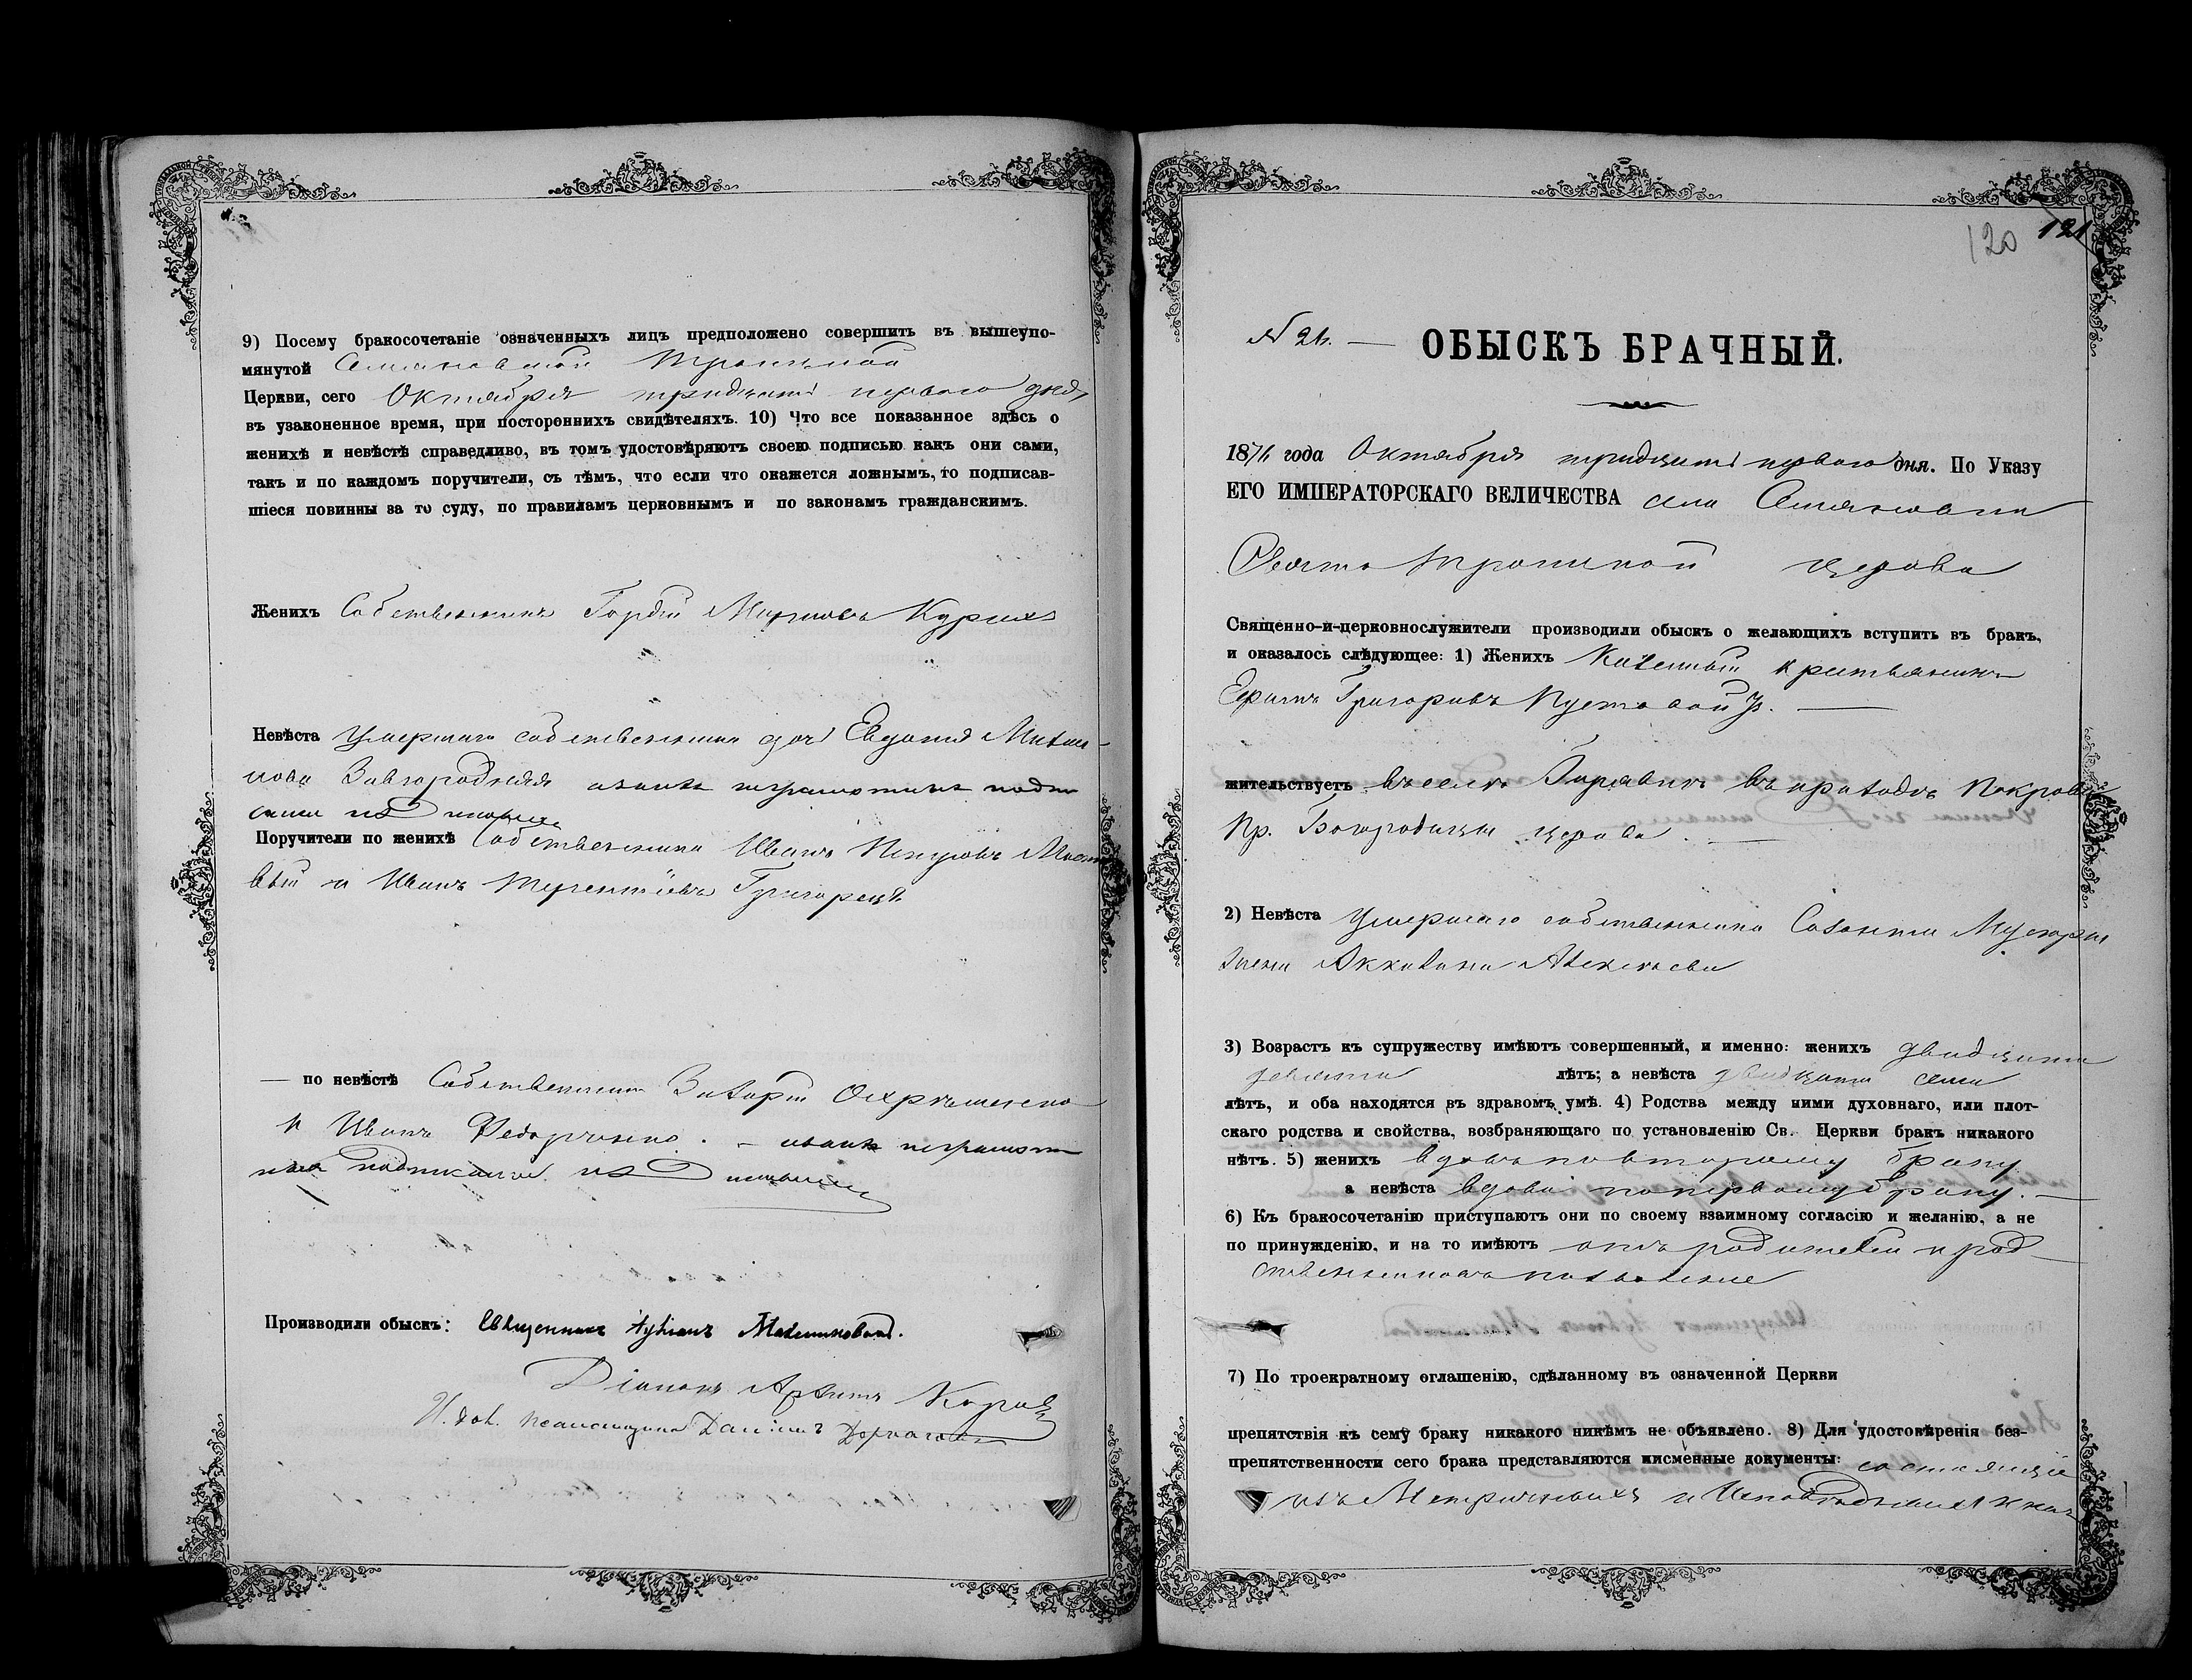 9) Посему бракосочетаніе означенныхъ лицъ предположено совершить въ вышеупо-
мянутой Троицкой
Церкви, сего Октября тридцать перваго дня,
въ узаконенное время, при постороннихъ свидѣтеляхъ. 10) Что все показанное здѣсь о
женихѣ и невѣстѣ справедливо, въ томъ удостовѣряютъ своею подписью какъ они сами,
такъ и по каждомъ поручители, съ тѣмъ, что если что окажется ложнымъ, то подписав-
шіеся повинны за то суду, по правиламъ церковнымъ и по законамъ гражданскимъ.
Женихъ Собственникъ Гордій
Невѣста Умершаго собственника дочь Евдокія
Завгородняя а за нихъ неграмотныхъ
Поручители по женихѣ Собственники Иванъ
и Иванъ Терентіевъ
— по невѣстѣ Собственники Захарій
и Иванъ Федорченко. — а за нихъ неграмот
ныхъ
Производили обыскъ: Священникъ
Діаконъ
И. дол. псаломщика Даніилъ
120 121
N 26. — ОБЫСКЪ БРАЧНЫЙ.
1876 года Октября тридцать перваго дня. По Указу
ЕГО ИМПЕРАТОРСКАГО ВЕЛИЧЕСТВА села
Свято Троицкой церкви
Священно-и-церковнослужители производили обыскъ о желающихъ вступить въ бракъ,
и оказалось слѣдующее: 1) Женихъ Казенный крестьянинъ
Григорьевъ Пустовойтъ. —
жительствуетъ въ селѣ въ приходѣ Покрова
Пр. Богородицы церкви. —
2) Невѣста Умершаго собственника
жена Алексѣева
3) Возрастъ къ супружеству имѣютъ совершенный, и именно: женихъ двадцати
девяти лѣтъ; а невѣста двадцати семи
лѣтъ, и оба находятся въ здравомъ умѣ. 4) Родства между ними духовнаго, или плот-
скаго родства и свойства, возбраняющаго по установленію Св. Церкви бракъ никакого
нѣтъ. 5) женихъ вдовъ по второму браку
а невѣста вдова по первому браку. —
6) Къ бракосочетанію приступаютъ они по своему взаимному согласію и желанію, а не
по принужденію, и на то имѣютъ отъ родителей и род-
ственниковъ позволеніе
7) По троекратному оглашенію, сдѣланному въ означенной Церкви
препятствія къ сему браку никакого никѣмъ не объявлено. 8) Для удостовѣренія без-
препятственности сего брака представляются писменные документы: состоящіе
изъ Метрическихъ и Исповѣдныхъ книгъ